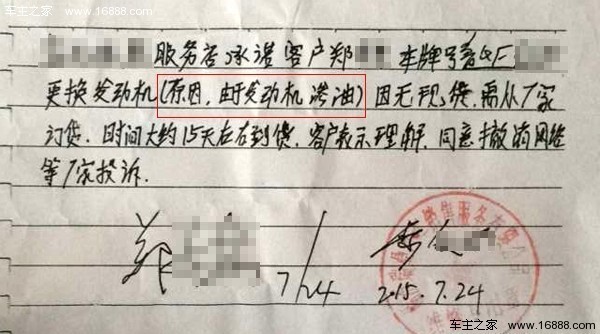 车主之家 www.16888.com
服务店承诺客户郑 车牌号
更换发动机(原因,由于发动机渗油)因无现货,需从厂家
订货.时间大约15天左右到货.客户表示理解.同意撤消网络
等厂家投诉.
郑 7/24
2015.7.24
销售服务有限公司
车主之家 www.16888.com